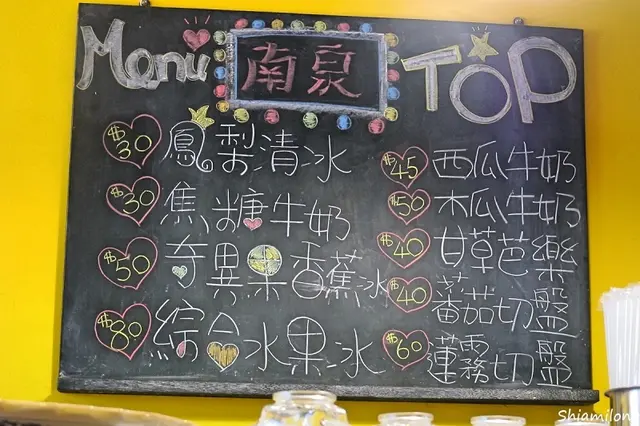 Menu 南泉 TOP
$30 鳳梨清冰
$30 焦糖牛奶
$50 奇異果香蕉冰
$80 綜合水果冰
$45 西瓜牛奶
$50 木瓜牛奶
$40 甘草芭樂
$40 蕃茄切盤
$60 蓮霧切盤
Shiamilon